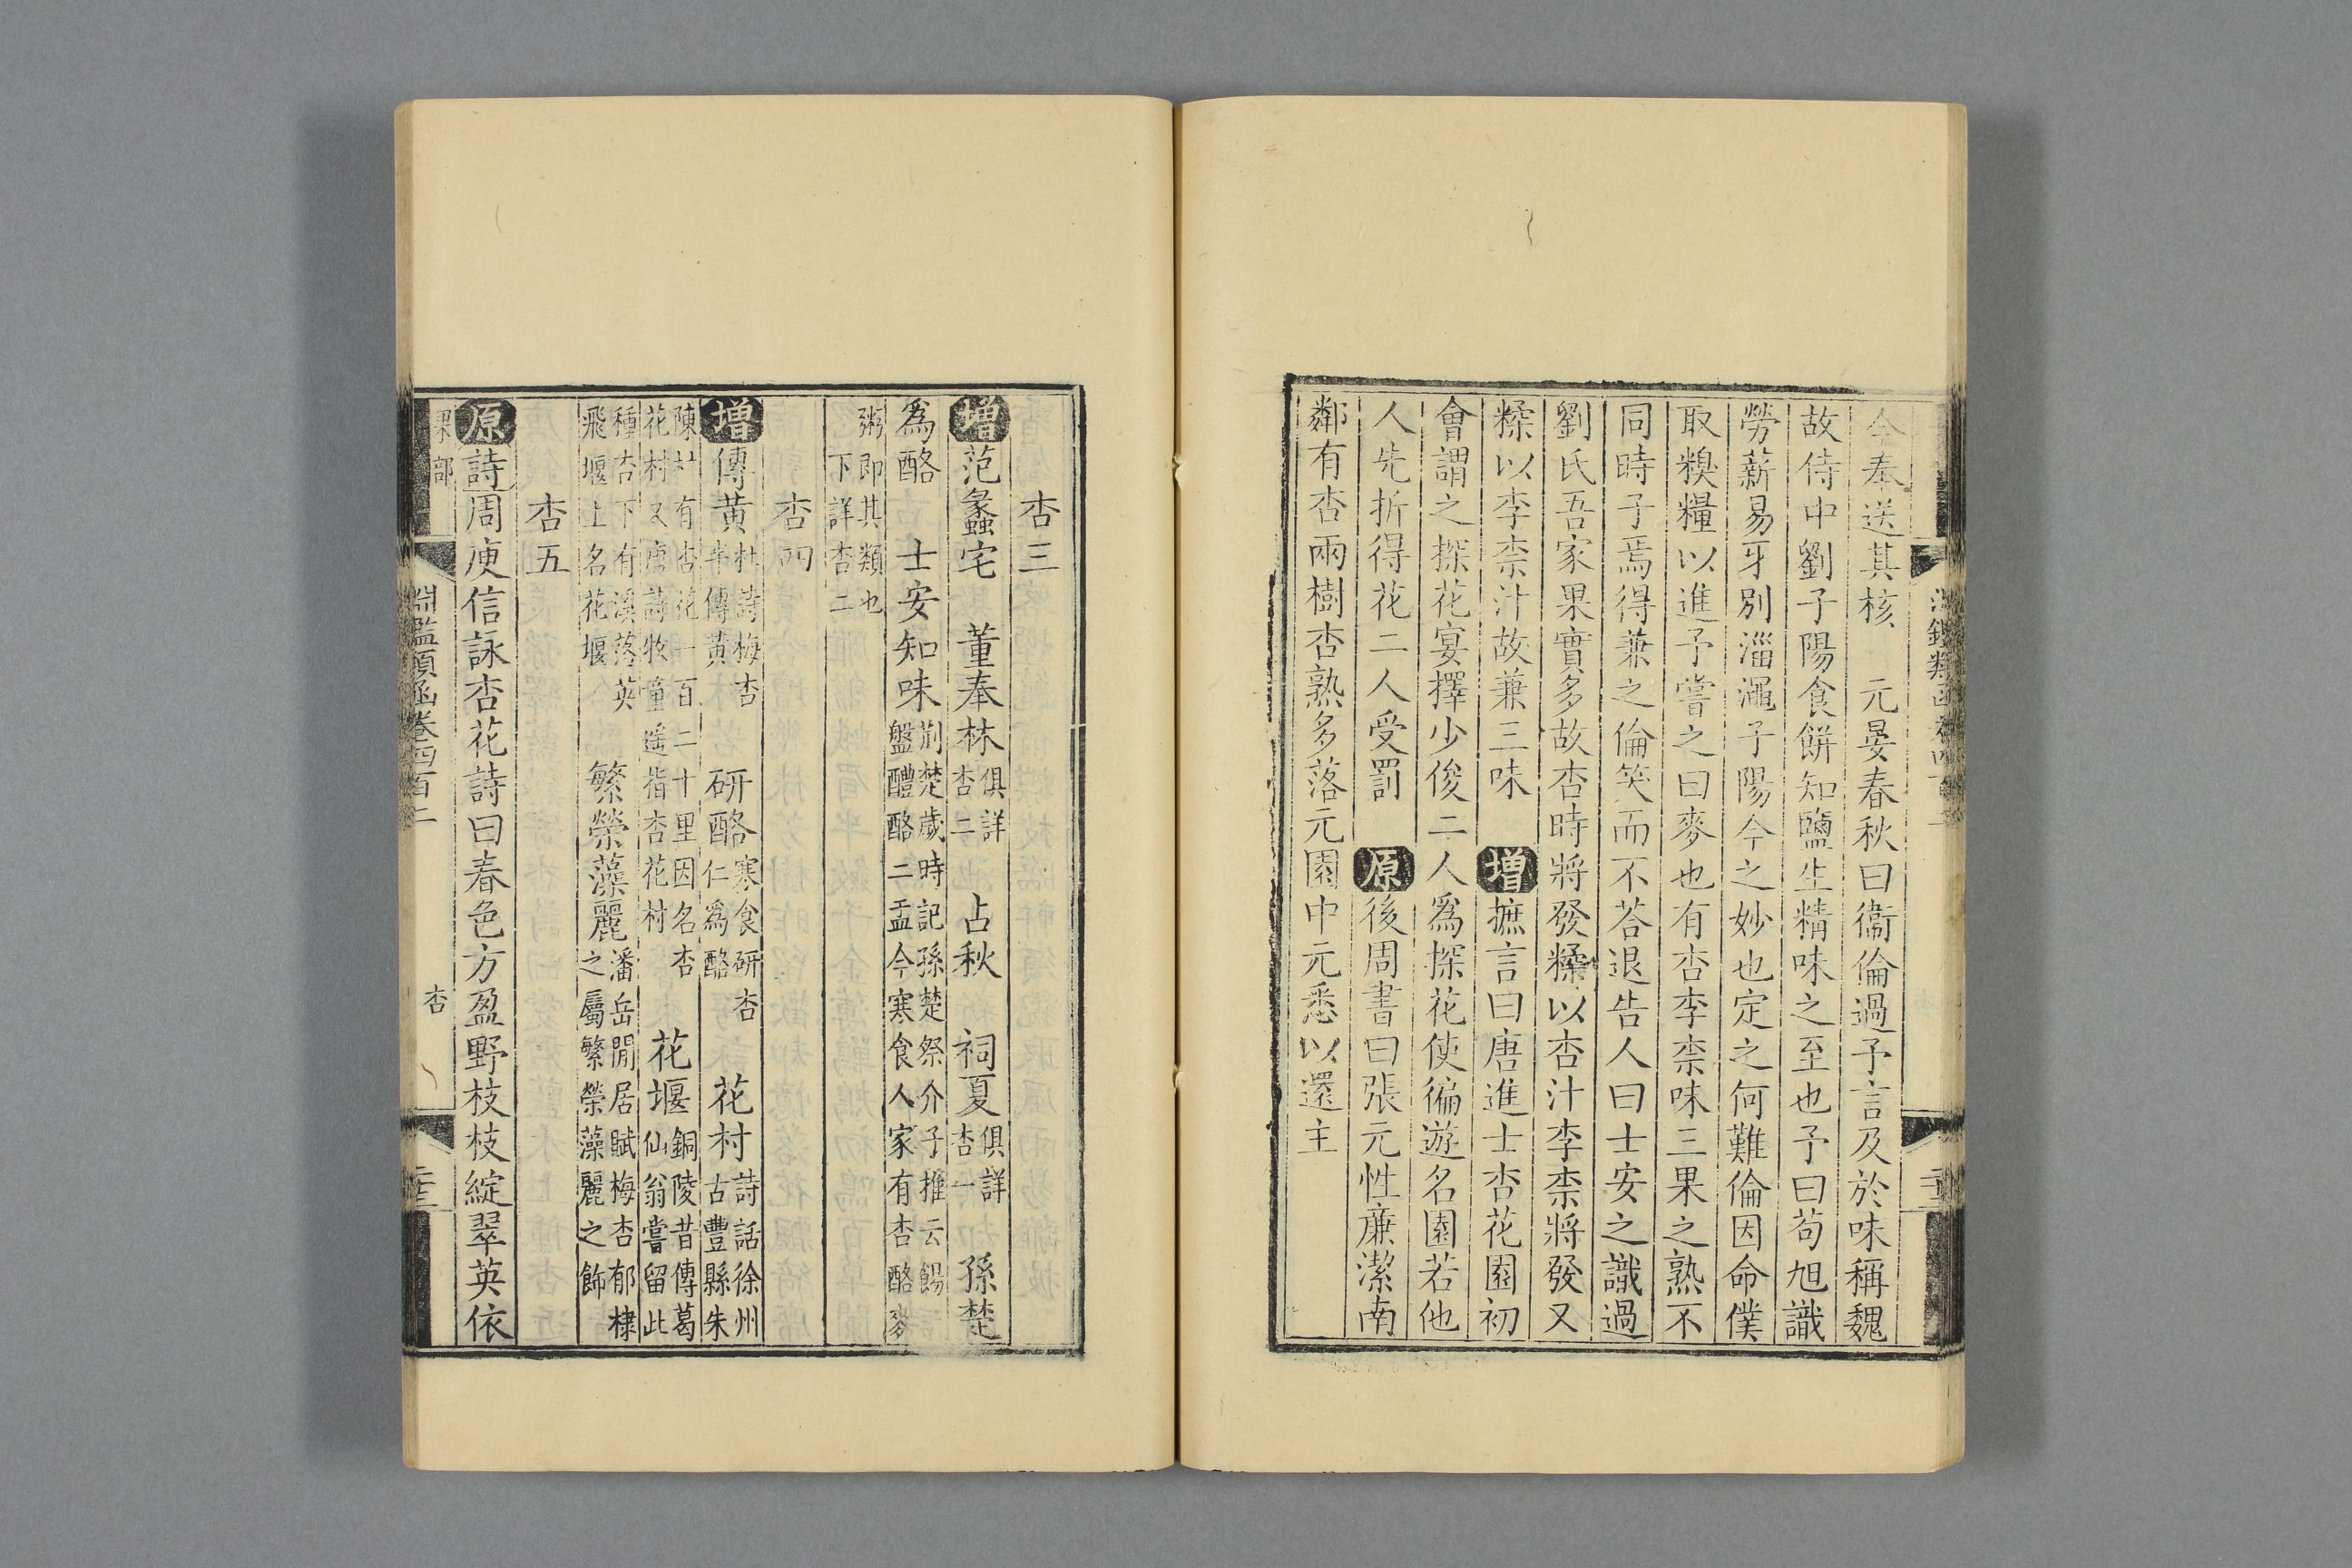 今奉送其核 元晏春秋曰衞倫過予言及於味稱魏
故侍中劉子陽食餅知鹽生精味之至也予曰荀旭識
勞薪易牙別淄澠子陽今之妙也定之何難倫因命僕
取糗糧以進予嘗之曰麥也有杏李柰味三果之熟不
同時子焉得兼之倫笑而不荅退告人曰士安之識過
劉氏吾家果實多故杏時將發糅以杏汁李柰將發又
糅以李柰汁故兼三味 增摭言曰唐進士杏花園初
會謂之探花宴擇少俊二人爲探花使徧遊名園若他
人先折得花二人受罰 原後周書曰張元性廉潔南
鄰有杏兩樹杏熟多落元園中元悉以還主
杏三
增范蠡宅 董奉林俱詳杏二 占秋 祠夏俱詳杏一 孫楚
爲酪 士安知味荆楚歲時記孫楚祭介子推云餳盤醴酪二盂今寒食人家有杏酪麥
粥即其類也下詳杏二
杏四
增傳黄杜詩梅杏半傳黄 研酪寒食研杏仁爲酪 花村詩話徐州古豐縣朱
陳村有杏花一百二十里因名杏花村又唐詩牧童遥指杏花村 花堰銅陵昔傳葛仙翁嘗留此
種杏下有溪落英飛堰上名花堰 繁榮藻麗潘岳閒居賦梅杏郁棣之屬繁榮藻麗之飾
杏五
原詩周庾信詠杏花詩曰春色方盈野枝枝綻翠英依
果部 淵鑑類函卷四百二 杏